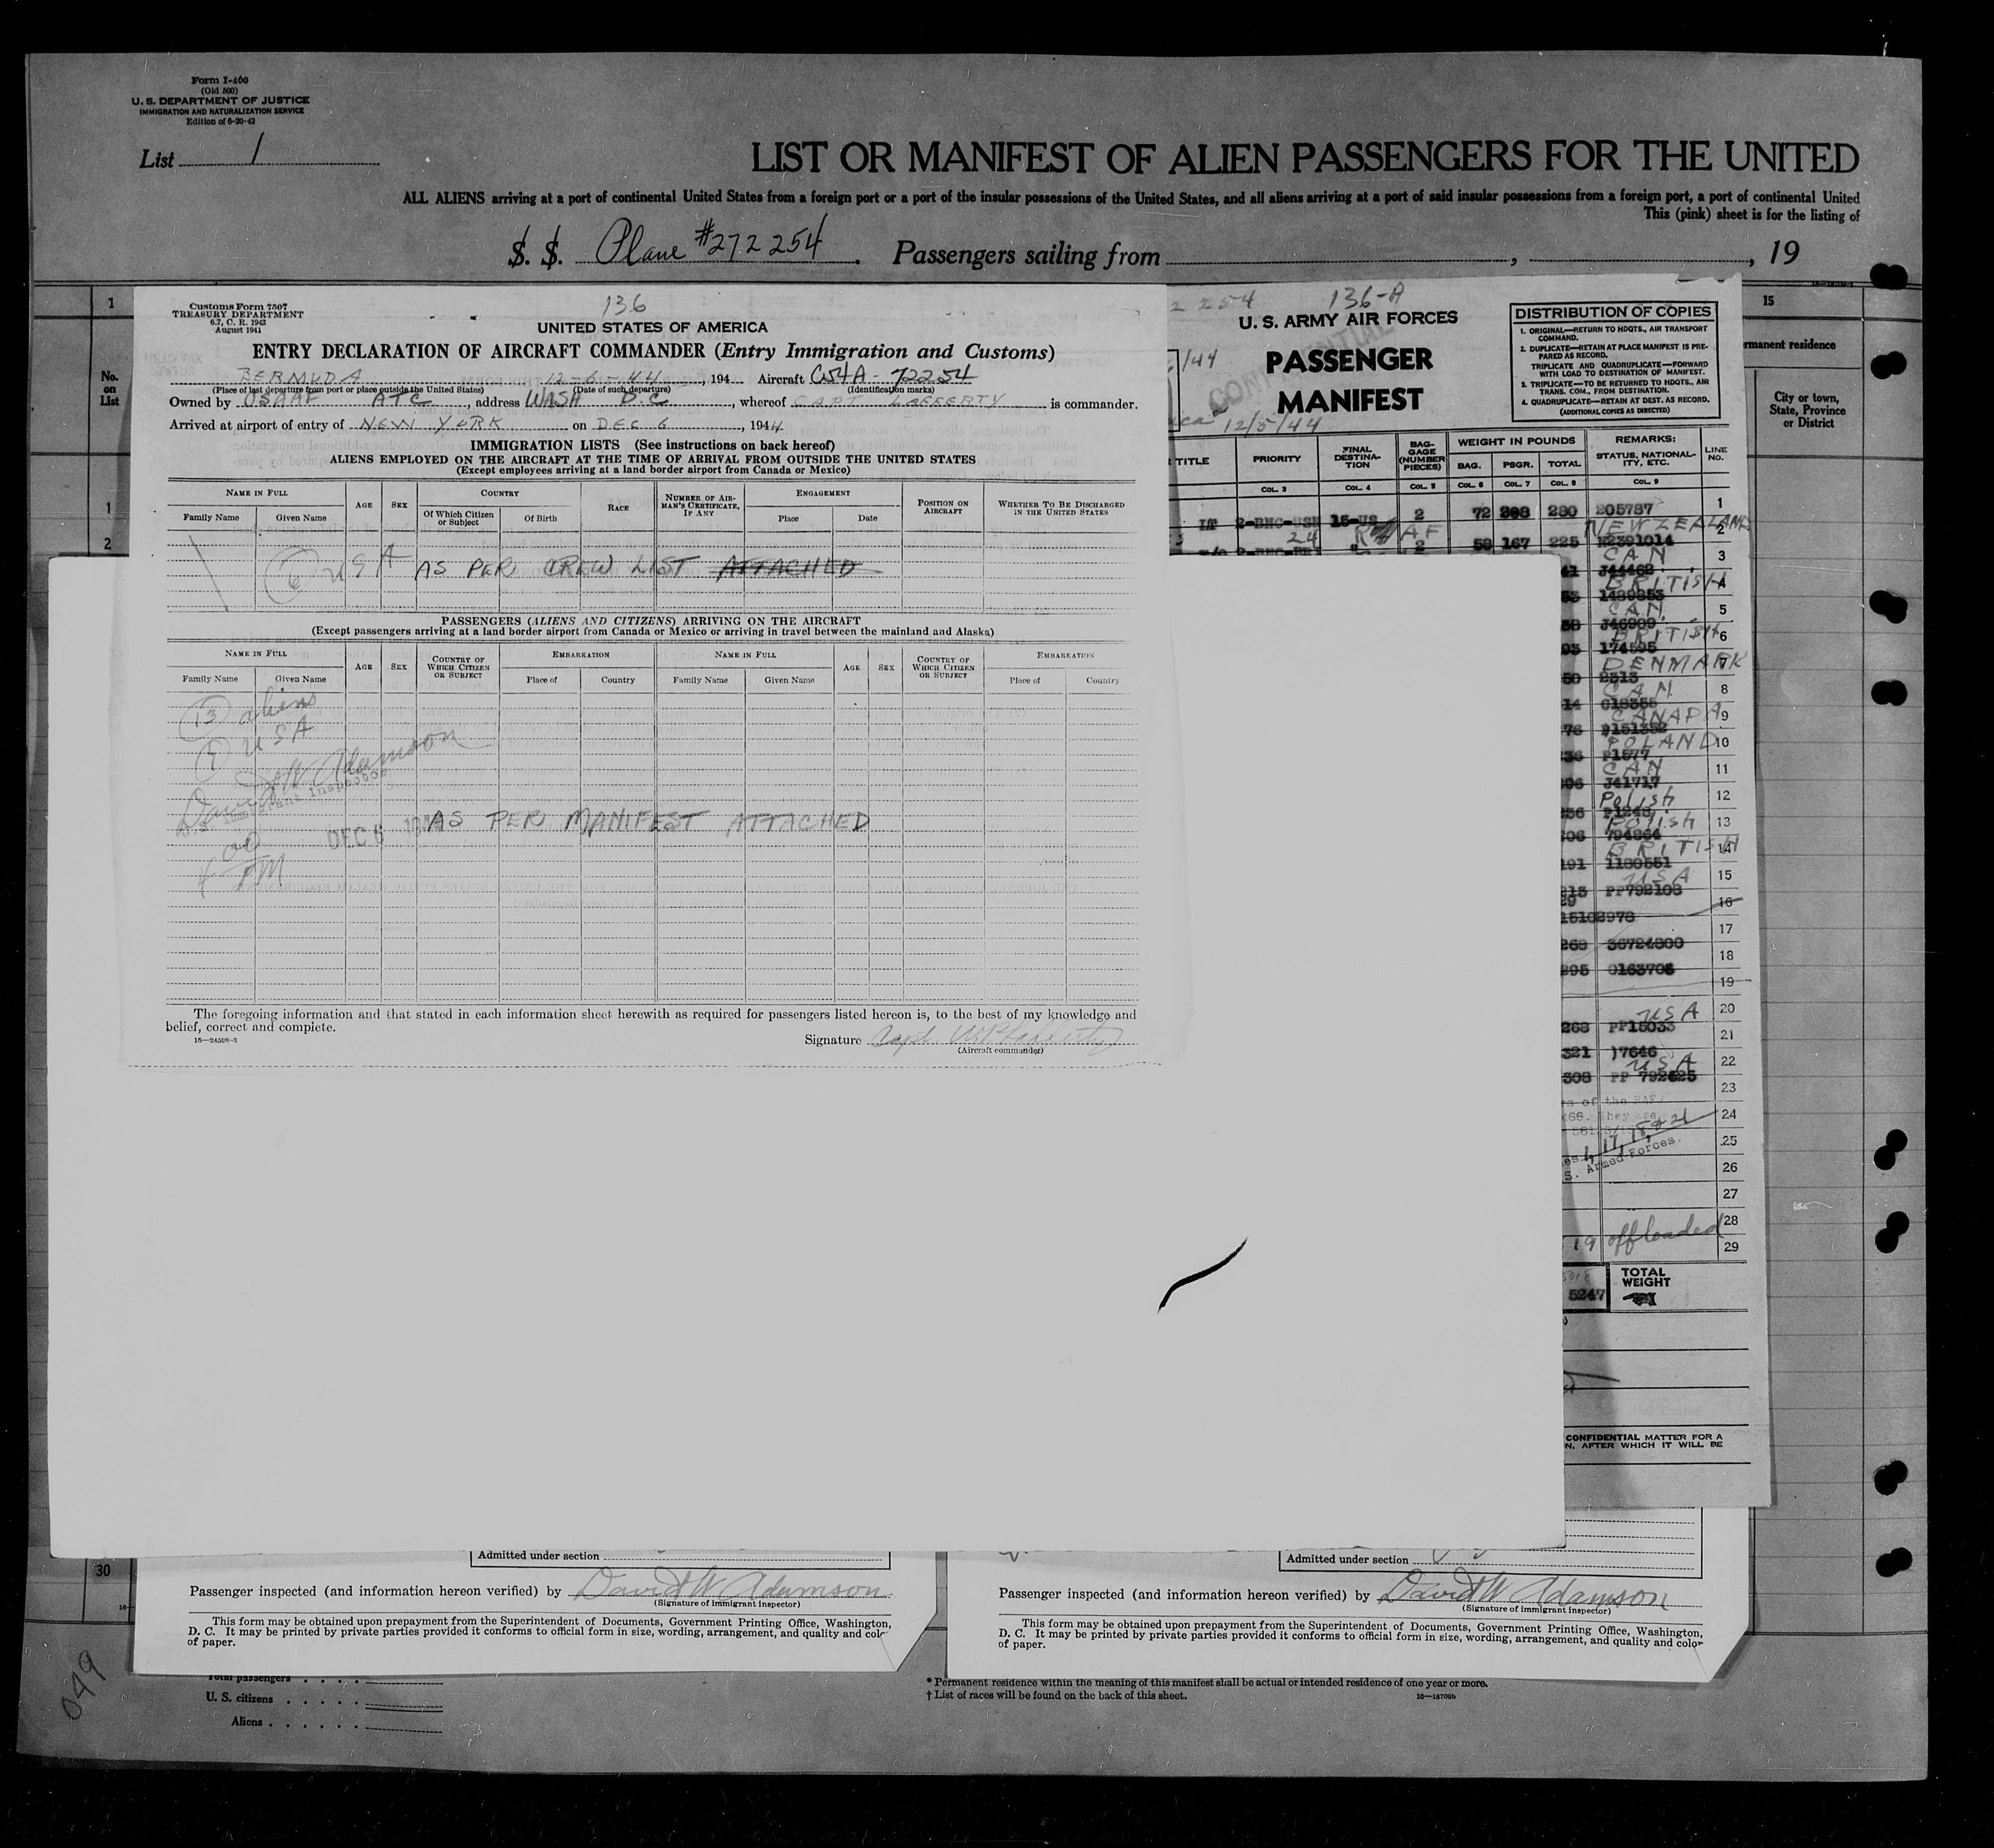 Form I-400
(Old 500)
U. S. DEPARTMENT OF JUSTICE
IMMIGRATION AND NATURALIZATION SERVICE
Edition of 6-20-42
List 1
LIST OR MANIFEST OF ALIEN PASSENGERS FOR THE UNITED
ALL ALIENS arriving at a port of continental United States from a foreign port or a port of the insular possessions of the United States, and all aliens arriving at a port of said insular possessions from a foreign port, a port of continental United
This (pink) sheet is for the listing of
S. S. Plane #272254. Passengers sailing from , , 19
1
No.
on
List
1
2
15
rmanent residence
City or town,
State, Province
or District
Customs Form 7507
TREASURY DEPARTMENT
6.7, C. R. 1943
August 1941
136
UNITED STATES OF AMERICA
ENTRY DECLARATION OF AIRCRAFT COMMANDER (Entry Immigration and Customs)
BERMUDA 12-6-44, 194 Aircraft C54A-72254
(Place of last departure from port or place outside the United States) (Date of such departure) (Identification marks)
Owned by USAAF ATC, address WASH D.C, whereof CAPT LAFFERTY is commander.
Arrived at airport of entry of NEW YORK on DEC 6, 1944.
IMMIGRATION LISTS (See instructions on back hereof)
ALIENS EMPLOYED ON THE AIRCRAFT AT THE TIME OF ARRIVAL FROM OUTSIDE THE UNITED STATES
(Except employees arriving at a land border airport from Canada or Mexico)
NAME IN FULL AGE SEX COUNTRY RACE NUMBER OF AIRMAN'S CERTIFICATE, IF ANY ENGAGEMENT POSITION ON AIRCRAFT WHETHER TO BE DISCHARGED IN THE UNITED STATES
Family Name Given Name Of Which Citizen or Subject Of Birth Place Date
6 USA AS PER CREW LIST ATTACHED
PASSENGERS (ALIENS AND CITIZENS) ARRIVING ON THE AIRCRAFT
(Except passengers arriving at a land border airport from Canada or Mexico or arriving in travel between the mainland and Alaska)
NAME IN FULL AGE SEX COUNTRY OF WHICH CITIZEN OR SUBJECT EMBARKATION NAME IN FULL AGE SEX COUNTRY OF WHICH CITIZEN OR SUBJECT EMBARKATION
Family Name Given Name Place of Country Family Name Given Name Place of Country
13 aliens
USA
David W Adamson
Immigrant Inspector
DEC 6
AS PER MANIFEST ATTACHED
4 00 PM
The foregoing information and that stated in each information sheet herewith as required for passengers listed hereon is, to the best of my knowledge and
belief, correct and complete.
16—24598-3
Signature Capt. Lafferty
(Aircraft commander)
2 254 136-A
U. S. ARMY AIR FORCES
PASSENGER
MANIFEST
/44
12/5/44
CONFIDENTIAL
DISTRIBUTION OF COPIES
1. ORIGINAL—RETURN TO HDQTS., AIR TRANSPORT
COMMAND.
2. DUPLICATE—RETAIN AT PLACE MANIFEST IS PRE-
PARED AS RECORD.
TRIPLICATE AND QUADRUPLICATE—FORWARD
WITH LOAD TO DESTINATION OF MANIFEST.
3. TRIPLICATE—TO BE RETURNED TO HDQTS., AIR
TRANS. COM., FROM DESTINATION.
4. QUADRUPLICATE—RETAIN AT DEST. AS RECORD.
(ADDITIONAL COPIES AS DIRECTED)
TITLE PRIORITY FINAL DESTINA-TION BAG-GAGE (NUMBER PIECES) WEIGHT IN POUNDS REMARKS: STATUS, NATIONAL-ITY, ETC. LINE NO.
BAG. PSGR. TOTAL
COL. 3 COL. 4 COL. 5 COL. 6 COL. 7 COL. 8 COL. 9
2 72 208 280 205787 1
NEW ZEALAND 2
2 58 167 225 N2391014
CAN 3
J44462
BRITISH 4
1489853
CAN. 5
J46909
BRITISH 6
174595
DENMARK 7
2313
CAN 8
C18355
CANADA 9
D151352
POLAND 10
P1577
CAN 11
J41717
Polish 12
P1248
Polish 13
794864
BRITISH 14
1180551
USA 15
PP792108
16
15102978
17
268 36724800
18
295 0163706
19
USA 20
268 PP15033
21
321 )7646
USA 22
308 PP 792625
23
24
17, 18 & 21
25
S. Armed Forces.
26
27
28
19 offloaded
29
5247 TOTAL WEIGHT
CONFIDENTIAL MATTER FOR A
N, AFTER WHICH IT WILL BE
30
Admitted under section
Passenger inspected (and information hereon verified) by David W Adamson
(Signature of immigrant inspector)
This form may be obtained upon prepayment from the Superintendent of Documents, Government Printing Office, Washington,
D. C. It may be printed by private parties provided it conforms to official form in size, wording, arrangement, and quality and colo
of paper.
Admitted under section
Passenger inspected (and information hereon verified) by David W Adamson
(Signature of immigrant inspector)
This form may be obtained upon prepayment from the Superintendent of Documents, Government Printing Office, Washington,
D. C. It may be printed by private parties provided it conforms to official form in size, wording, arrangement, and quality and color
of paper.
049
Total passengers
U. S. citizens
Aliens
* Permanent residence within the meaning of this manifest shall be actual or intended residence of one year or more.
† List of races will be found on the back of this sheet.
16—18709b